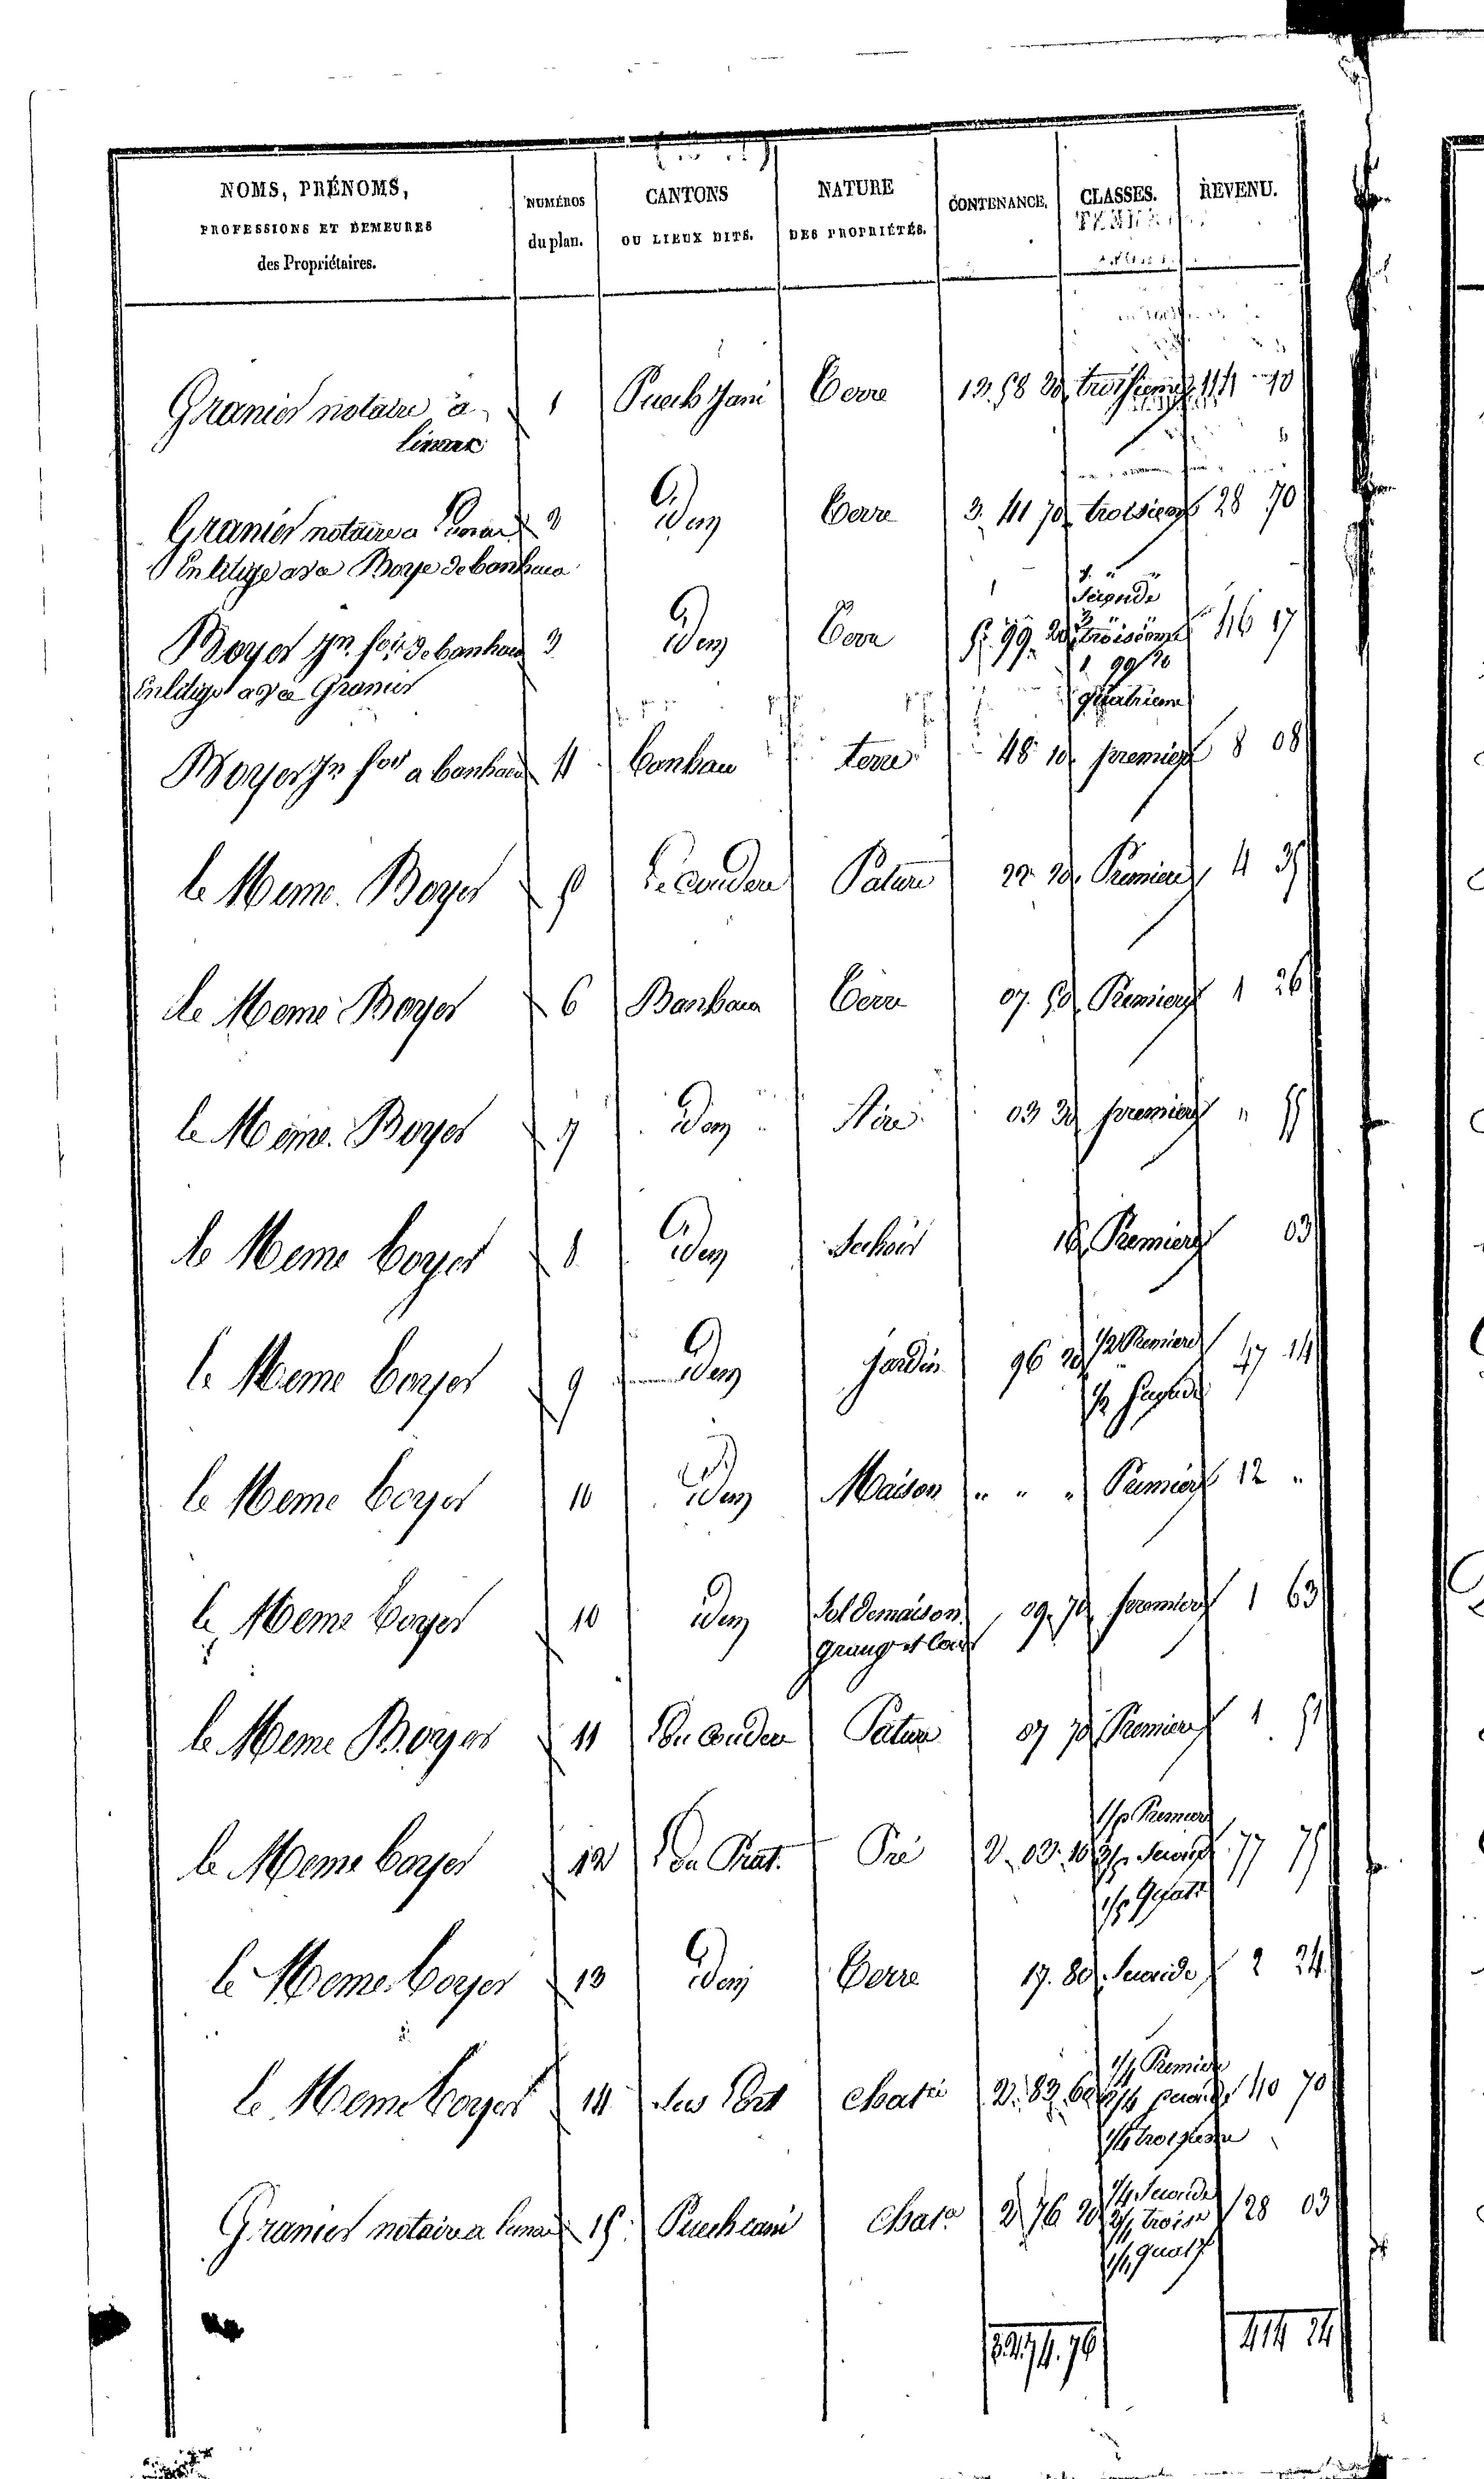 NOMS, PRÉNOMS, PROFESSIONS ET DEMEURES des Propriétaires. NUMÉROS du plan. CANTONS OU LIEUX DITS. NATURE DES PROPRIÉTÉS. CONTENANCE. CLASSES. REVENU.
Granier notaire a 1 Terre 13. 58 30 troisieme 114 10
Granier notaire a 2 Idem Terre 3. 41 70 troisieme 28 70
En litige avec Boyer de banhars
seconde
Boyer jn fois de banhars 3 Idem Terre 5. 99. 20 troisieme 46 17
En litige avec Granier quatrieme
Boyer jn fois a banhars 4 banhars terre 48 10 premiere 8 08
le Meme Boyer 5 Le couderc Pature 22 20 Premiere 4 35
le Meme Boyer 6 Banhars Terre 07. 50 Premiere 1 26
le Meme Boyer 7 Idem Aire 03 30 premiere " 55
le Meme boyer 8 Idem Sechoir 16 Premiere 03
le Meme boyer 9 Idem jardin 96 20 1/2 Premiere 47 14
1/2 seconde
le Meme boyer 10 Idem Maison " " " Premiere 12 "
le Meme boyer 10 idem Sol de maison 09. 70 premiere 1 63
grange et cour
le Meme Boyer 11 Lou couderc Pature 07 70 Premiere 1 51
1/5 Premiere
le Meme boyer 12 Lou Prat. Pré 2. 03. 10 3/5 seconde 77 75
1/5 Quatr
le Meme boyer 13 Idem Terre 17. 80 seconde 2 24
1/4 Premiere
le Meme boyer 14 Chatrie 2. 83. 60 2/4 seconde 40 70
1/4 troisieme
1/4 seconde
Granier notaire a 15 Puech Chatre 2 76 20 2/4 trois 28 03
1/4 quat
32. 74. 76 414 24